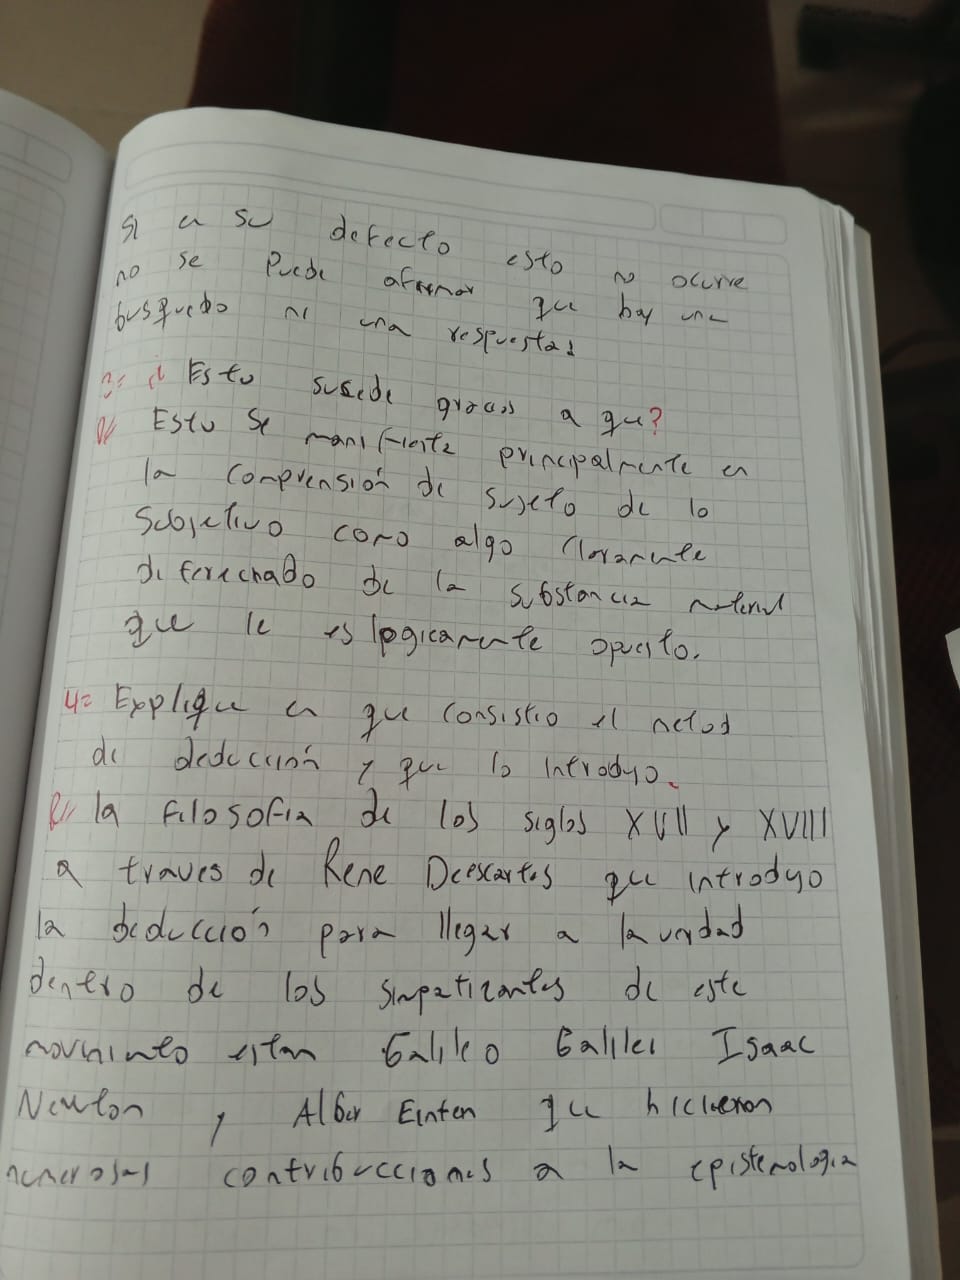 Si en su defecto esto no ocurre
no se puede afirmar que hay una
busquedo ni una respuestas
3= ¿ Esto susede gracias a que?
R// Esto se manifiesta principalmente en
la comprensión de sujeto de lo
subjetivo como algo claramente
diferechado de la substancia material
que le es logicamente opuesto.
4= Explique en que consistio el metod
de deducción y que lo introdyo.
R// la filosofia de los siglos XVII y XVIII
a traves de Rene Deescartes que introdyo
la deducción para llegar a la verdad
dentro de los simpatizantes de este
movimiento estan Galileo Galilei Isaac
Newton y Alber Einten que hicieron
numerosas contribucciones a la epistemologia